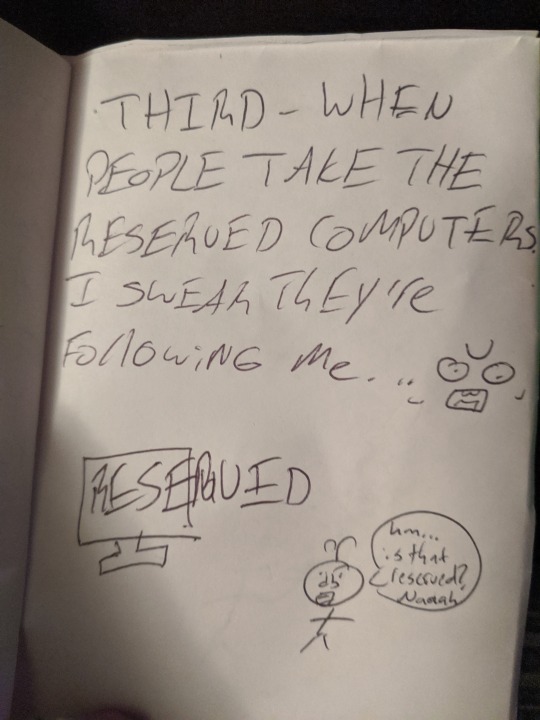 THIRD - WHEN
PEOPLE TAKE THE
RESERVED COMPUTERS.
I SWEAR THEY're
FOllOWiNG Me...
RESERVED
hm...
is that
reserved?
Naaah